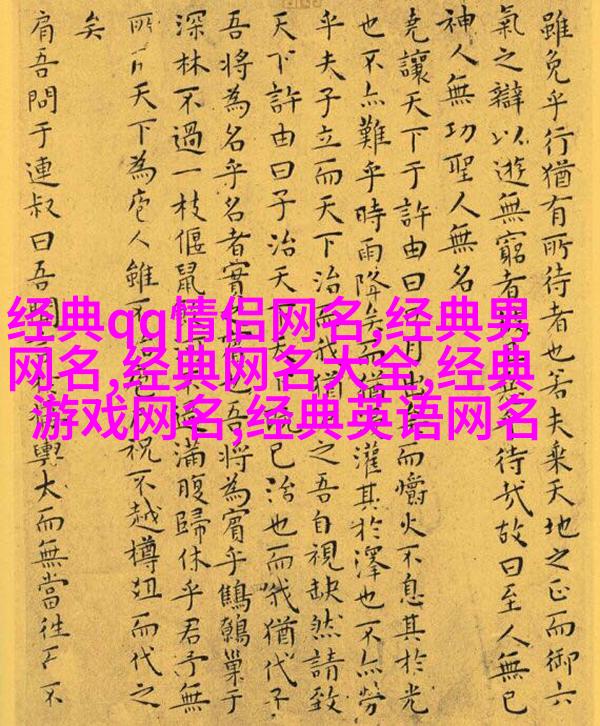 经典qq情侣网名,经典男
网名,经典网名大全,经典
游戏网名,经典英语网名
雖免乎行猶有所待者也若夫乘天地之正而御六
氣之辯以遊無窮者乎待哉故曰至人無己
神人無功聖人無名
堯讓天下于許由曰月出而爝火不息其於光
也不亦難乎時雨降矣而猶灌其於澤也不亦勞
乎夫子立而天下治而我猶之吾自視缺然請致
天下許由曰子治天下已治也而我猶代子
吾將為名乎名者實也吾將為賓乎鷦鷯巢于
深林不過一枝偃鼠過滿腹歸休乎君予無
所天下為庖人雖不祝不越樽俎而代之
矣
肩吾問于連叔曰吾聞輿大而無當往而不